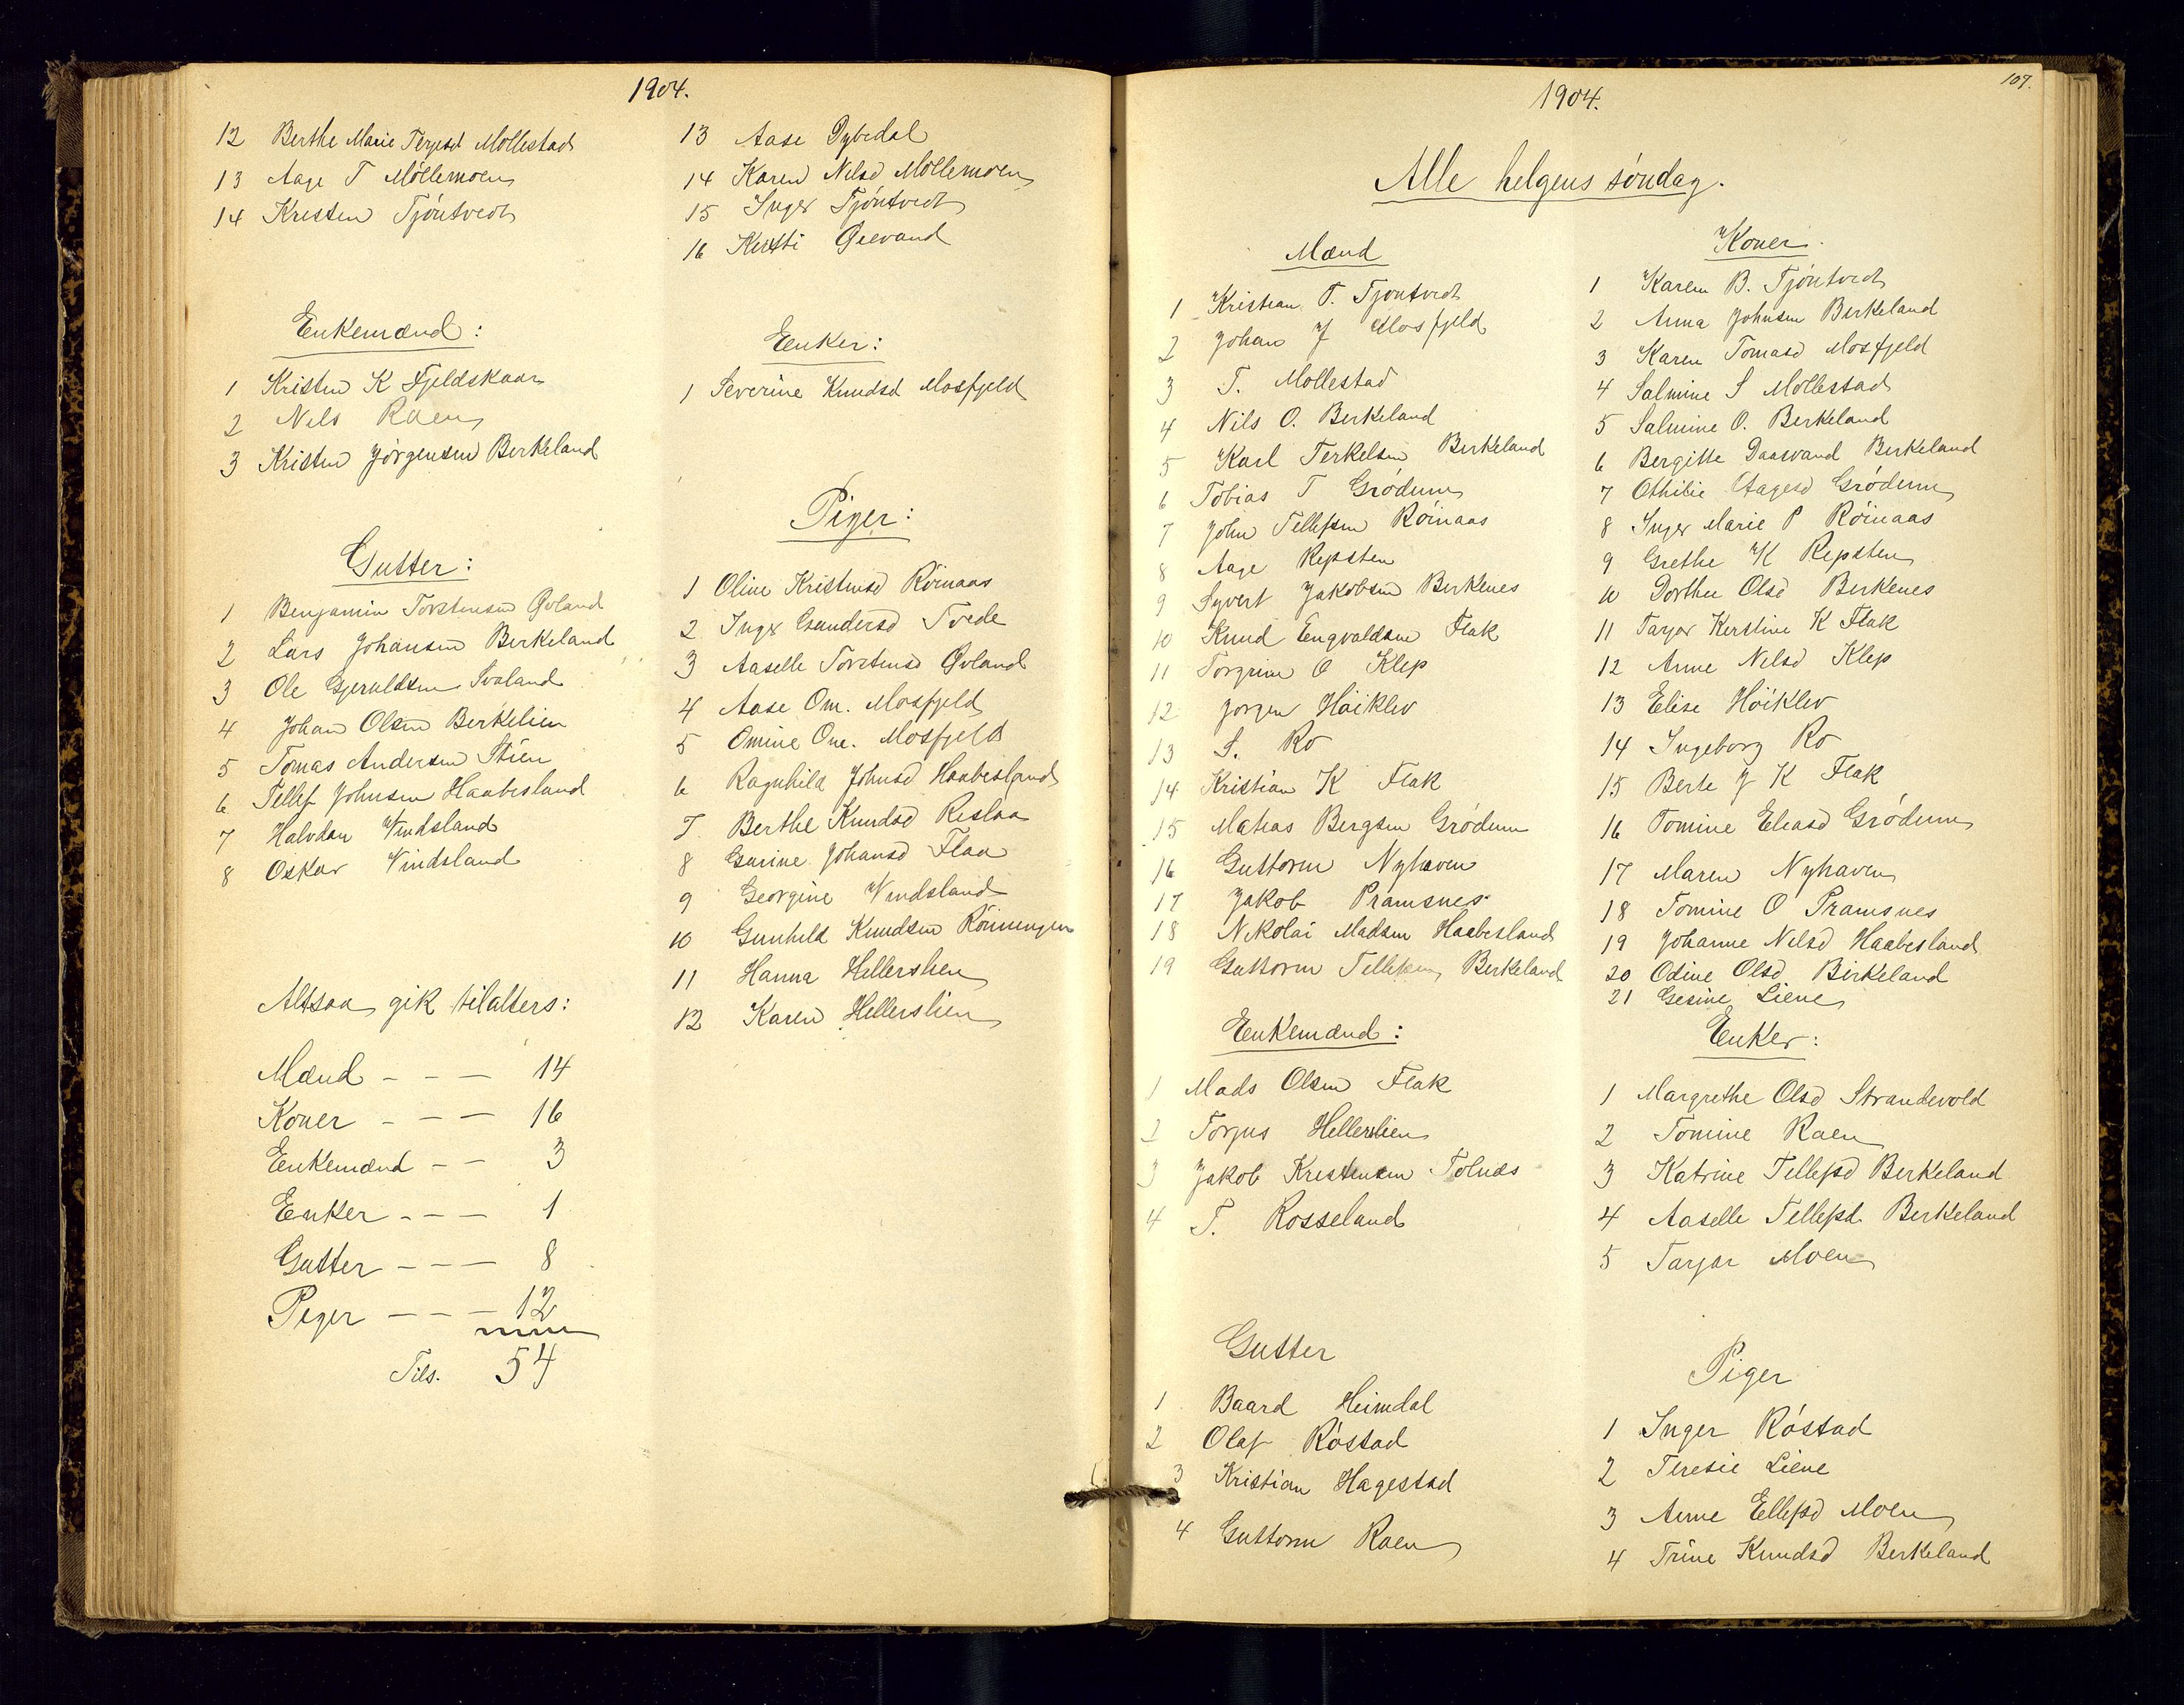 1904.
12 Berthe Marie Terjesd Mollestad
13 Aage T Möllemoen
14 Kristen Tjöntvedt
13 Aase Dybedal
14 Karen Nelsd Möllemoen
15 Inger Tjöntvedt
16 Kirsti
Enkemænd:
1 Kristen K Fjeldskaar
2 Nels Raen
3 Kristen Jörgensen Berkeland
Enker:
1 Severine Knudsd Mosfjeld
Gutter:
1 Benjamin Torstensen
2 Lars Johansen Berkeland
3 Ole Gjeruldsen Svaland
4 Johan Olsen Berkelien
5 Tomas Andersen Stien
6 Tellef Johnsen Haabesland
7 Halvdan Vindsland
8 Oskar Vindsland
Piger:
1 Oline Kristensd Röinaas
2 Inger Gundersd Tvede
3 Aaselle Torstensd
4 Aase Om. Mosfjeld
5 Omine One. Mosfjeld
6 Ragnhild Johnsd Haabesland
7 Berthe Knudsd Reslaa
8 Gurine Johansd Flaa
9 Georgine Vindsland
10 Gunhild Knudsen Rönningen
11 Hanna Hellerslien
12 Karen Hellerslien
Altsaa gik tilalters:
Mænd - - - 14
Koner - - - 16
Enkemænd - - 3
Enker - - - 1
Gutter - - - 8
Piger - - - 12
Tils. 54
107.
1904.
Alle helgens söndag.
Mænd
1 Kristian T. Tjöntvedt
2 Johan J Mosfjeld
3 T. Mollestad
4 Nils O. Berkeland
5 Karl Terkelsen Berkeland
6 Tobias T Grödum
7 John Tellefsen Röinaas
8 Aage Repsten
9 Syvert Jakobsen Berkenes
10 Knud Engvaldsen Flak
11 Torgrim O Klep
12 Jörgen Höiklev
13 S. Ro
14 Kristian K Flak
15 Matias Bergsen Grödum
16 Guttorm Nyhaven
17 Jakob Pramsnes
18 Nikolai Madsen Haabesland
19 Guttorm Tellefsen Berkeland
Koner.
1 Karen B. Tjöntvedt
2 Anna Johnsen Berkeland
3 Karen Tomasd Mosfjeld
4 Salmine S Mollestad
5 Salmine O. Berkeland
6 Bergitte Daasvand Berkeland
7 Othilie Aagesd Grödum
8 Inger Marie P Röinaas
9 Grethe K Repsten
10 Dorthe Olsd Berkenes
11 Tarjer Kerstine K Flak
12 Anne Nelsd Klep
13 Elise Höiklev
14 Ingeborg Ro
15 Berte J K Flak
16 Tomine Eliasd Grödum
17 Maren Nyhaven
18 Tomine O Pramsnes
19 Johanne Nelsd Haabesland
20 Odine Olsd Birkeland
21 Gesine Liene
Enkemænd:
1 Mads Olsen Flak
2 Torjus Hellerslien
3 Jakob Kristensen Tolnæs
4 T. Rosseland
Enker:
1 Margrethe Olsd Strandevold
2 Tomine Raen
3 Katrine Tellefsd Berkeland
4 Aaselle Tellefsd. Berkeland
5 Tarjar Moen
Gutter
1 Baard Heimdal
2 Olaf Röstad
3 Kristian Hagestad
4 Guttorm Raen
Piger
1 Inger Röstad
2 Teresie Liene
3 Anne Ellefsd Moen
4 Trine Knudsd Berkeland